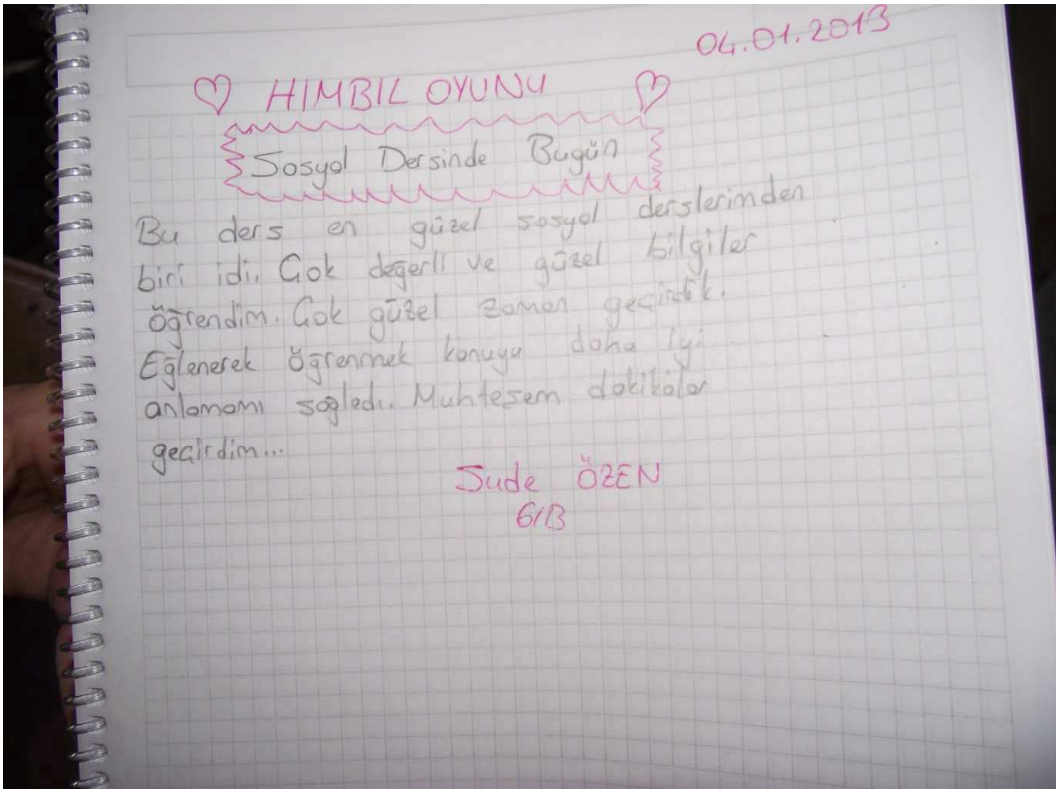 04.01.2013
HIMBIL OYUNU
Sosyal Dersinde Bugün
Bu ders en güzel sosyal derslerimden
biri idi. Çok değerli ve güzel bilgiler
öğrendim. Çok güzel zaman geçirdik.
Eğlenerek öğrenmek konuyu daha iyi
anlamamı sağladı. Muhteşem dakikalar
geçirdim...
Sude ÖZEN
6/B